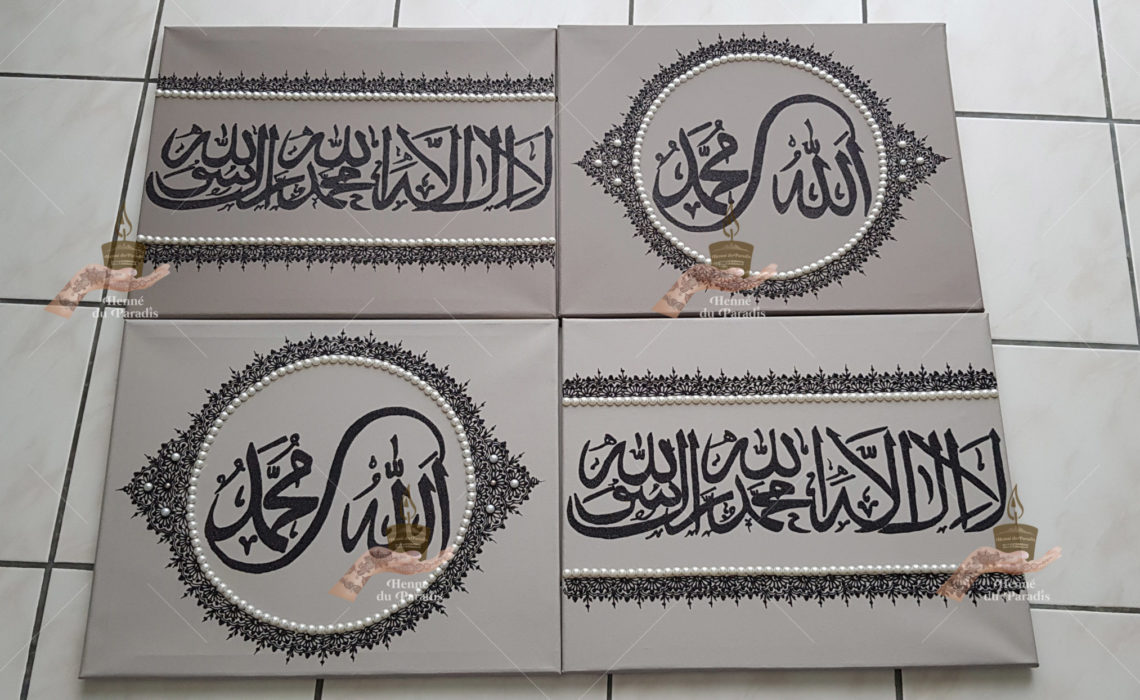 لا اله الا الله محمد رسول الله
الله محمد
Henné
du Paradis
Henné
du Paradis
الله محمد
لا اله الا الله محمد رسول الله
Henné
du Paradis
Henné
du Paradis